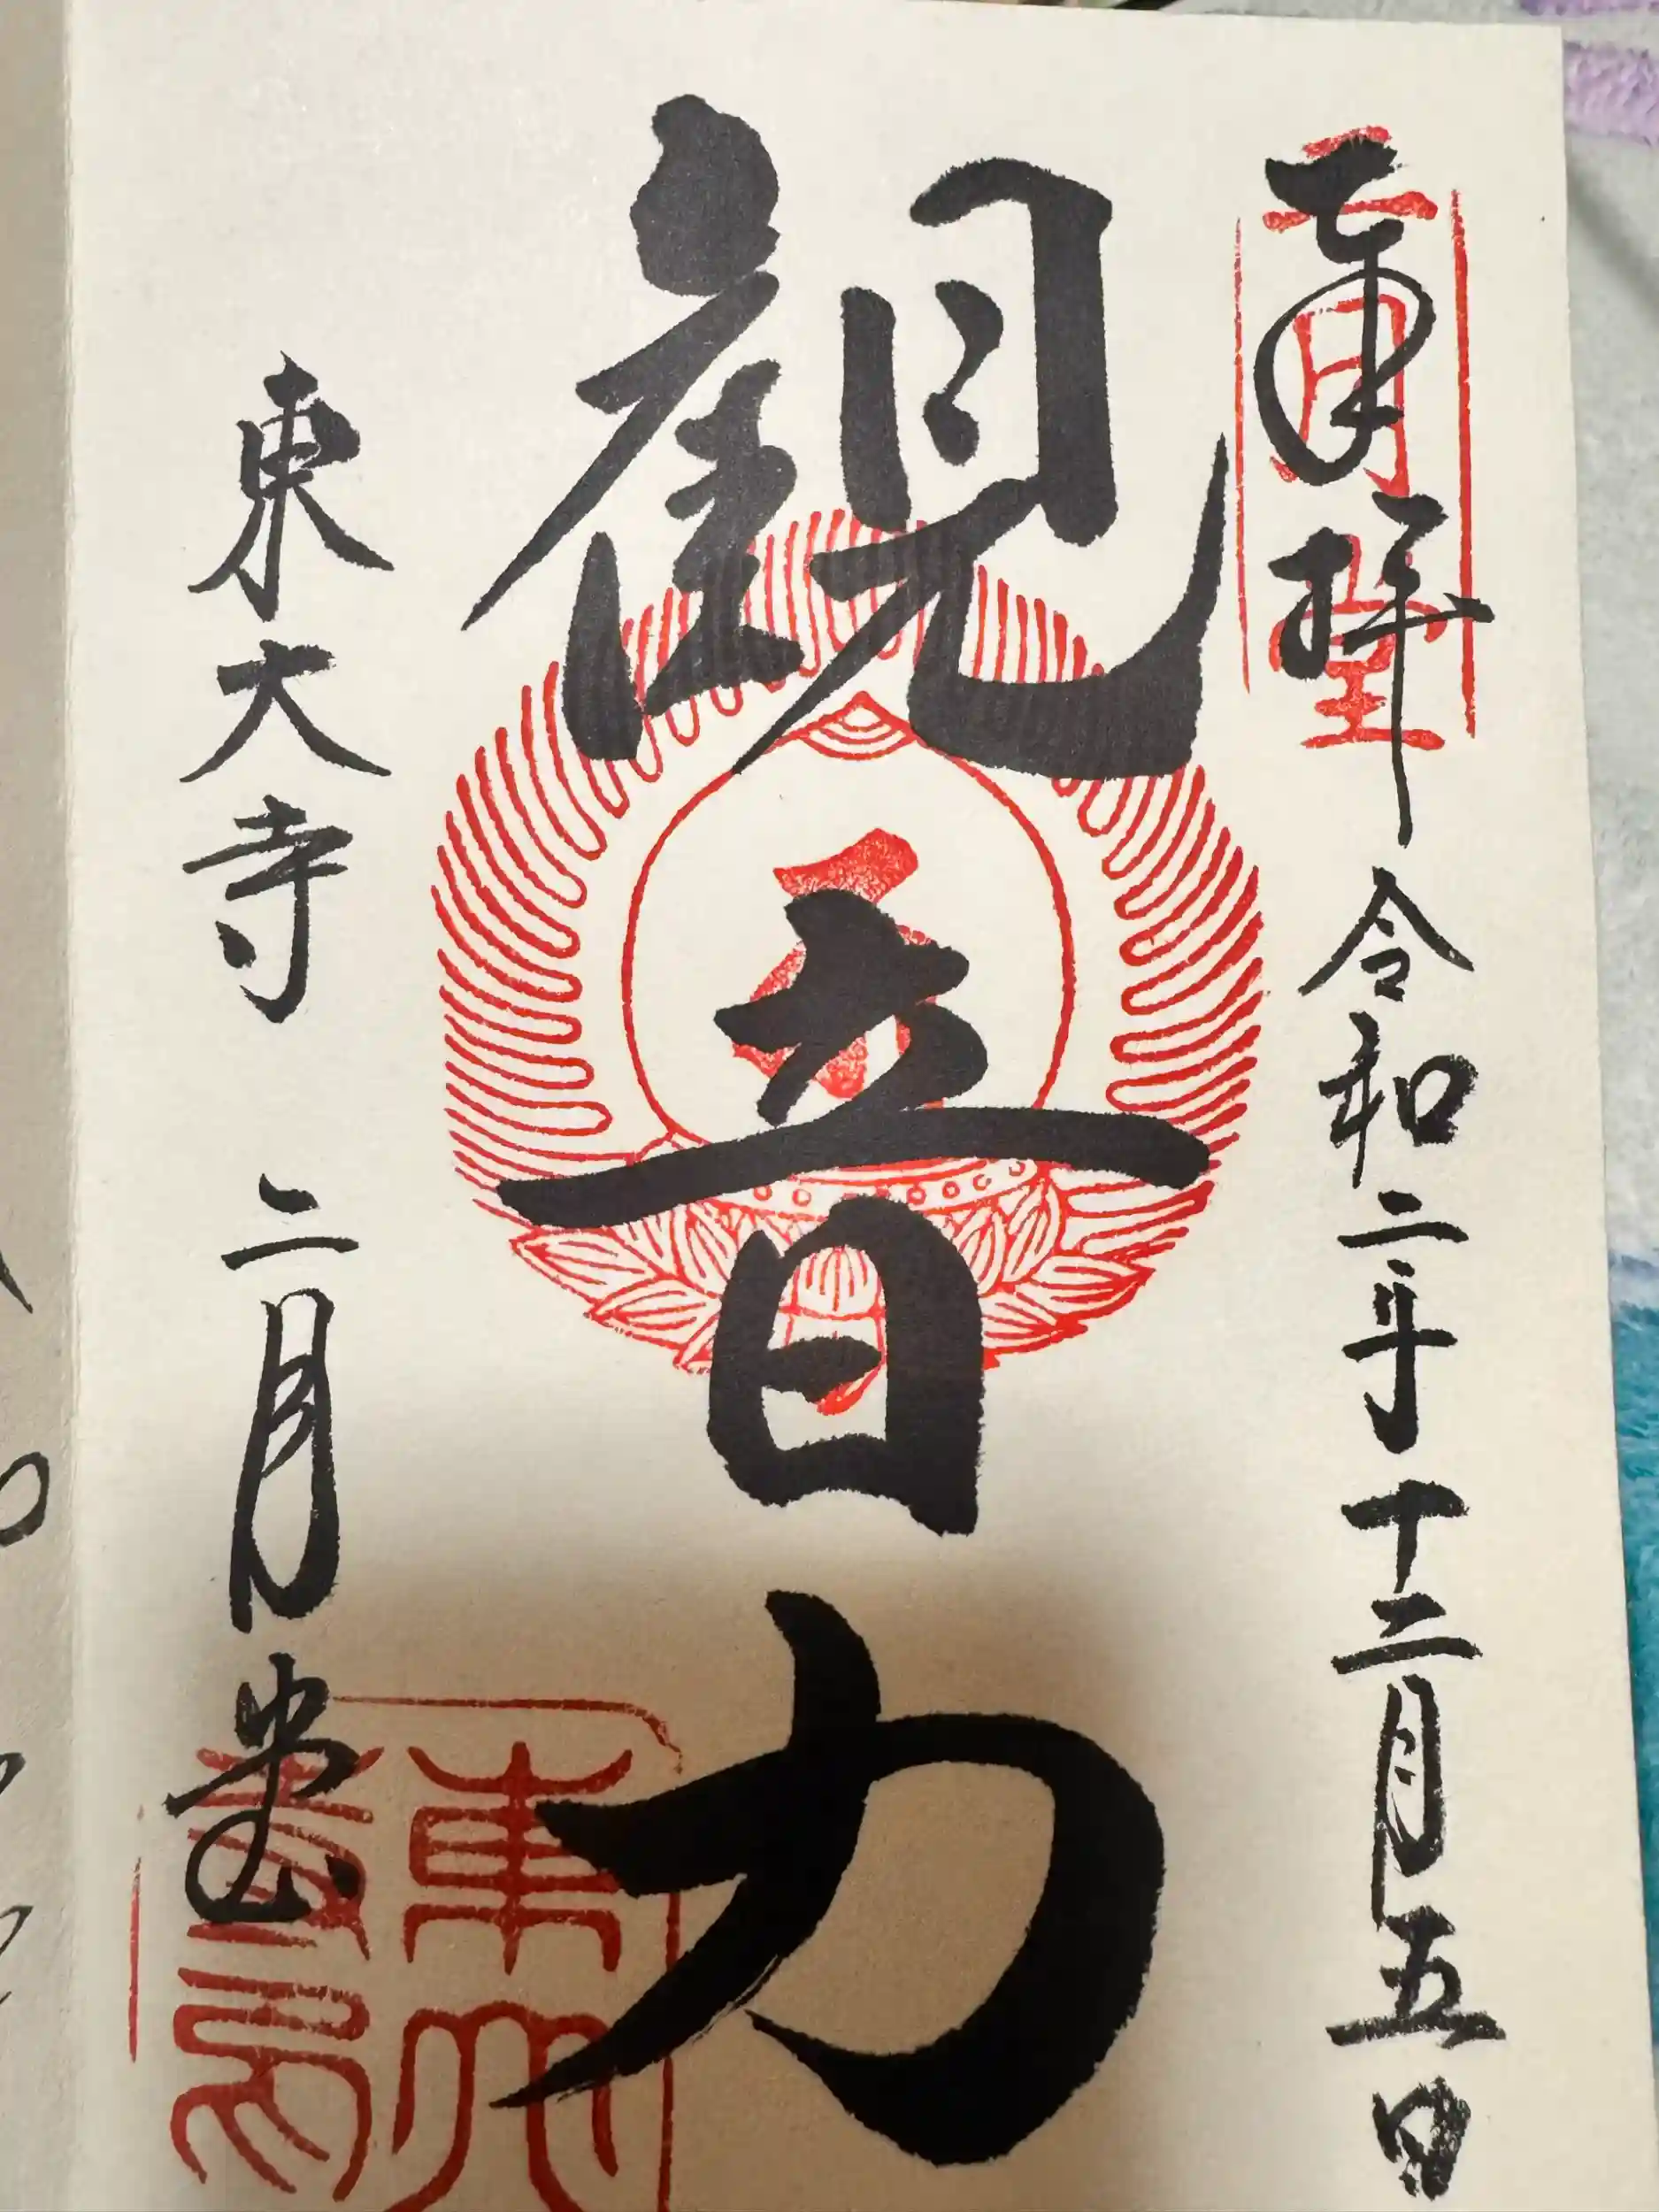 奉拝 令和二年十二月五日
二月堂
観音力
東大寺 二月堂